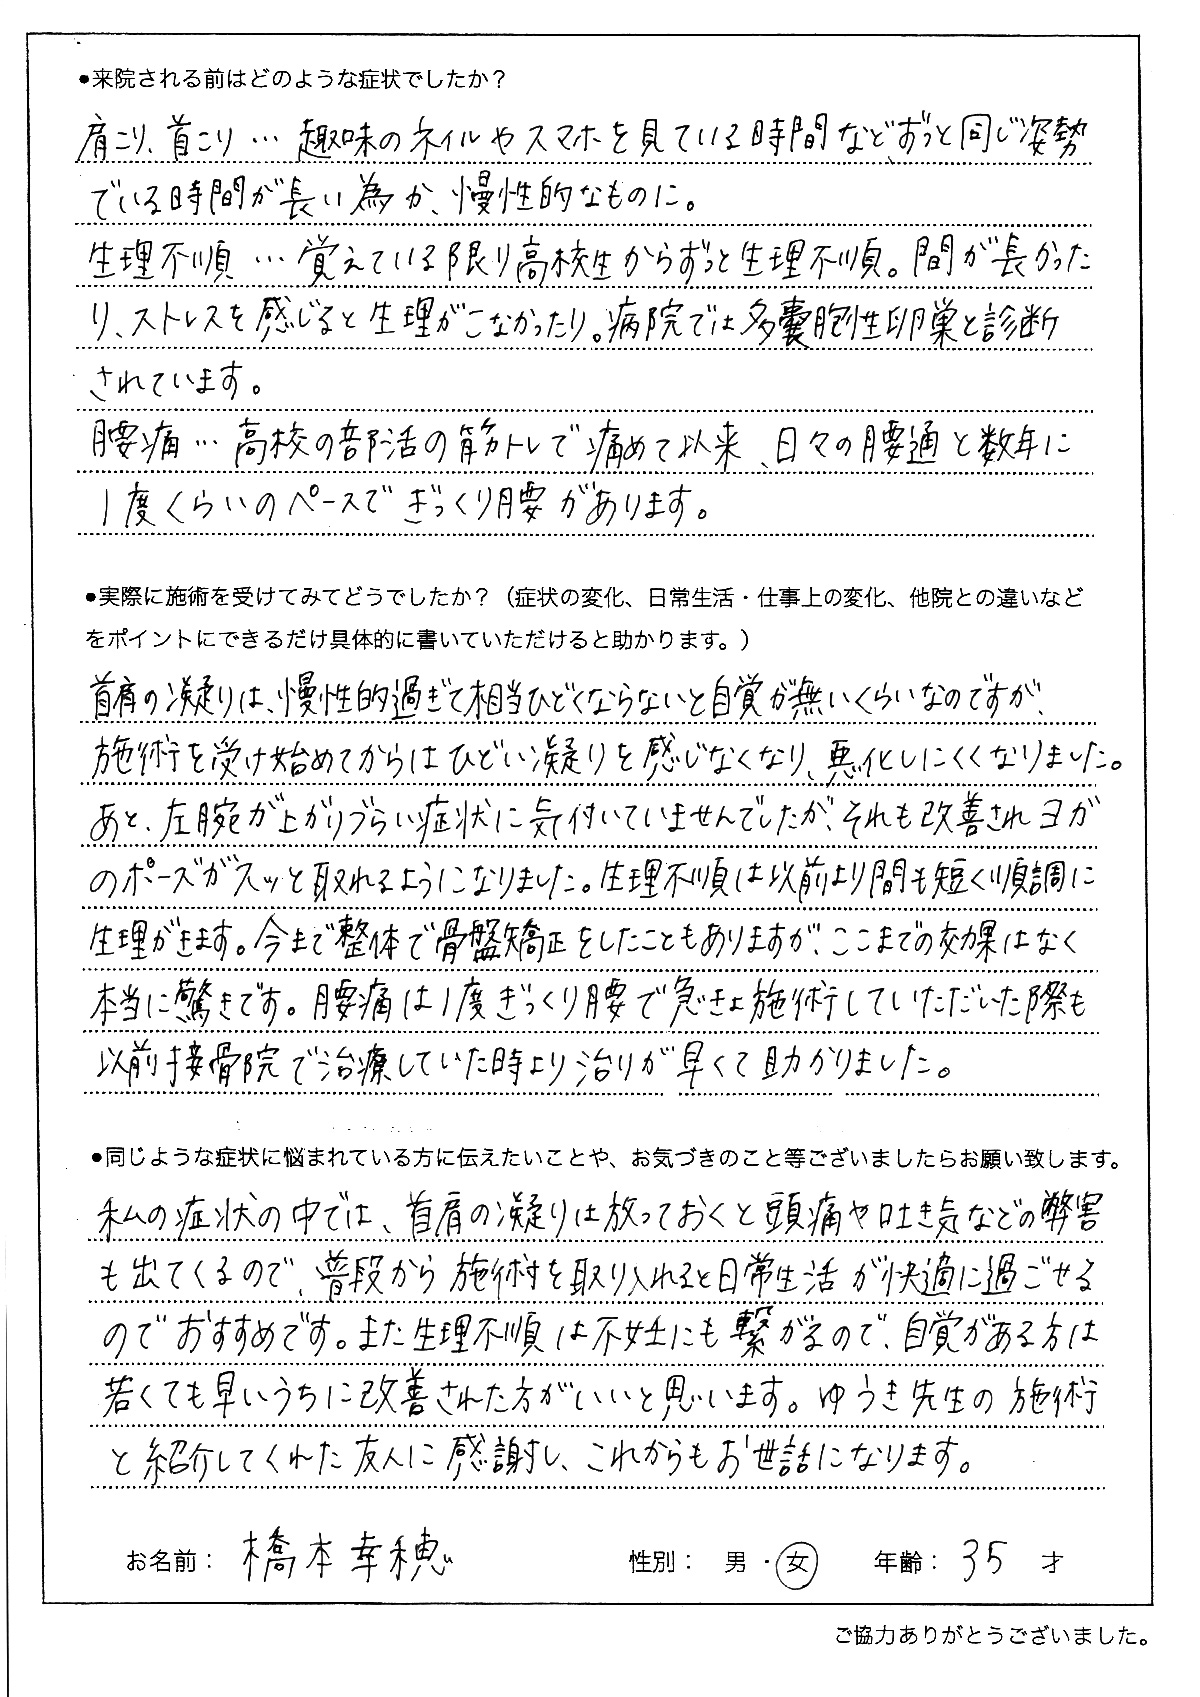 ●来院される前はどのような症状でしたか？
肩こり、首こり… 趣味のネイルやスマホを見ている時間など、ずっと同じ姿勢
でいる時間が長い為か、慢性的なものに。
生理不順… 覚えている限り高校生からずっと生理不順。間が長かった
り、ストレスを感じると生理がこなかったり。病院では多嚢胞性卵巣と診断
されています。
腰痛… 高校の部活の筋トレで痛めて以来、日々の腰通と数年に
1度くらいのペースでぎっくり腰があります。
●実際に施術を受けてみてどうでしたか？（症状の変化、日常生活・仕事上の変化、他院との違いなど
をポイントにできるだけ具体的に書いていただけると助かります。）
首肩の凝りは、慢性的過ぎて相当ひどくならないと自覚が無いくらいなのですが、
施術を受け始めてからはひどい凝りを感じなくなり、悪化しにくくなりました。
あと、左腕が上がりづらい症状に気付いていませんでしたが、それも改善されヨガ
のポーズがスッと取れるようになりました。生理不順は以前より間も短く順調に
生理がきます。今まで整体で骨盤矯正をしたこともありますが、ここまでの効果はなく
本当に驚きです。腰痛は1度ぎっくり腰で急きょ施術していただいた際も
以前接骨院で治療していた時より治りが早くて助かりました。
●同じような症状に悩まれている方に伝えたいことや、お気づきのこと等ございましたらお願い致します。
私の症状の中では、首肩の凝りは放っておくと頭痛や吐き気などの弊害
も出てくるので、普段から施術を取り入れると日常生活が快適に過ごせる
のでおすすめです。また生理不順は不妊にも繋がるので、自覚がある方は
若くても早いうちに改善された方がいいと思います。ゆうき先生の施術
と紹介してくれた友人に感謝し、これからもお世話になります。
お名前： 橋本幸穂 性別： 男・女 年齢： 35 才
ご協力ありがとうございました。